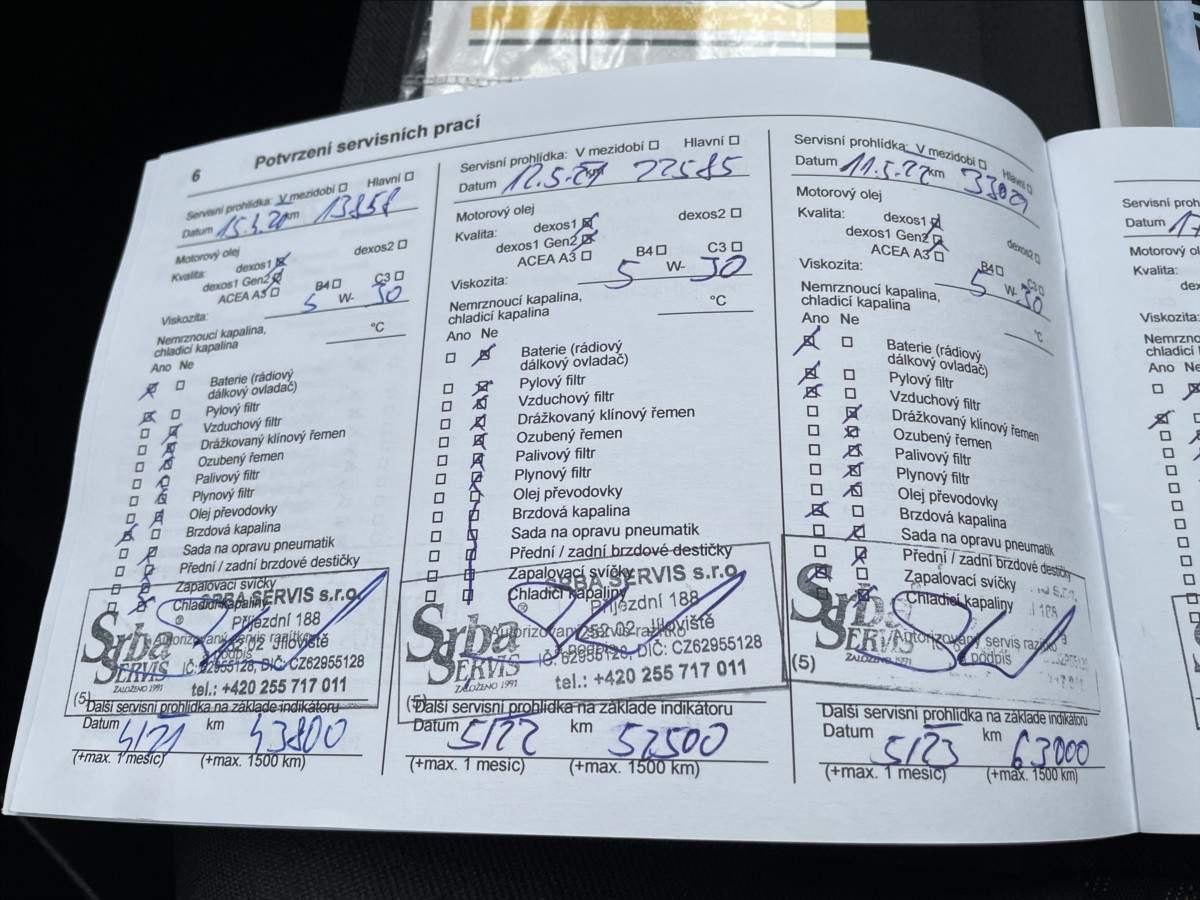 6 Potvrzení servisních prací
Servisní prohlídka: V mezidobí Hlavní
Datum 15.5.20 km 13858
Motorový olej
Kvalita: dexos1 dexos2
dexos1 Gen2
ACEA A3 B4 C3
Viskozita: 5 W- 30
Nemrznoucí kapalina,
chladicí kapalina °C
Ano Ne
Baterie (rádiový
dálkový ovladač)
Pylový filtr
Vzduchový filtr
Drážkovaný klínový řemen
Ozubený řemen
Palivový filtr
Plynový filtr
Olej převodovky
Brzdová kapalina
Sada na opravu pneumatik
Přední / zadní brzdové destičky
Zapalovací svíčky
Chladicí kapaliny
SRBA SERVIS s.r.o.
Příjezdní 188
252 02 Jíloviště
IČ: 62955128, DIČ: CZ62955128
tel.: +420 255 717 011
Srba
SERVIS
ZALOŽENO 1991
Autorizovaný servis razítko
podpis
(5)
Další servisní prohlídka na základě indikátoru
Datum 5/21 km 43800
(+max. 1 měsíc) (+max. 1500 km)
Servisní prohlídka: V mezidobí Hlavní
Datum 12.5.21 km 22585
Motorový olej
Kvalita: dexos1 dexos2
dexos1 Gen2
ACEA A3 B4 C3
Viskozita: 5 W- 30
Nemrznoucí kapalina,
chladicí kapalina °C
Ano Ne
Baterie (rádiový
dálkový ovladač)
Pylový filtr
Vzduchový filtr
Drážkovaný klínový řemen
Ozubený řemen
Palivový filtr
Plynový filtr
Olej převodovky
Brzdová kapalina
Sada na opravu pneumatik
Přední / zadní brzdové destičky
Zapalovací svíčky
Chladicí kapaliny
SRBA SERVIS s.r.o.
Příjezdní 188
252 02 Jíloviště
IČ: 62955128, DIČ: CZ62955128
tel.: +420 255 717 011
Srba
SERVIS
ZALOŽENO 1991
Autorizovaný servis razítko
podpis
(5)
Další servisní prohlídka na základě indikátoru
Datum 5/22 km 52500
(+max. 1 měsíc) (+max. 1500 km)
Servisní prohlídka: V mezidobí Hlavní
Datum 11.5.22 km
Motorový olej
Kvalita: dexos1 dexos2
dexos1 Gen2
ACEA A3 B4 C3
Viskozita: 5 W- 30
Nemrznoucí kapalina,
chladicí kapalina °C
Ano Ne
Baterie (rádiový
dálkový ovladač)
Pylový filtr
Vzduchový filtr
Drážkovaný klínový řemen
Ozubený řemen
Palivový filtr
Plynový filtr
Olej převodovky
Brzdová kapalina
Sada na opravu pneumatik
Přední / zadní brzdové destičky
Zapalovací svíčky
Chladicí kapaliny
Srba
SERVIS
ZALOŽENO 1991
Autorizovaný servis razítko
podpis
(5)
Další servisní prohlídka na základě indikátoru
Datum 5/23 km 63000
(+max. 1 měsíc) (+max. 1500 km)
Servisní
Datum
Motorový
Kvalita:
Viskozita:
chladicí
Ano Ne